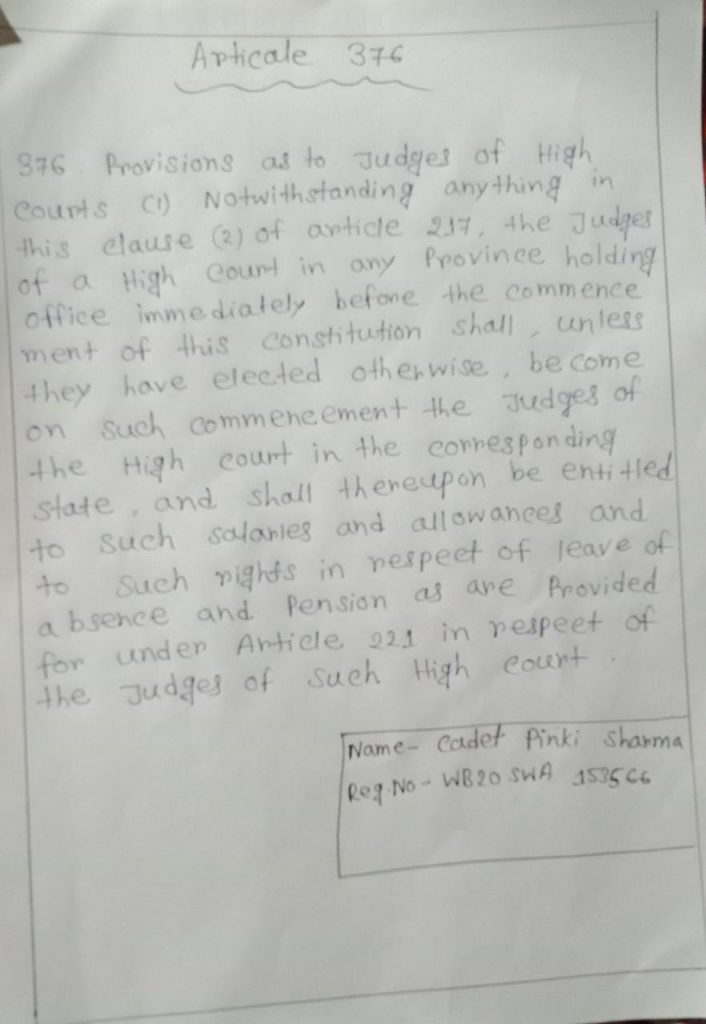 Articale 376
376 Provisions as to Judges of High
Courts (1) Notwithstanding anything in
this clause (2) of article 217, the Judges
of a High Court in any Province holding
office immediately before the commence
ment of this constitution shall, unless
they have elected otherwise, become
on such commencement the Judges of
the High court in the corresponding
state, and shall thereupon be entitled
to such salaries and allowances and
to such rights in respect of leave of
absence and Pension as are Provided
for under Article 221 in respect of
the Judges of such High court.
Name- Cadet Pinki Sharma
Reg.No - WB20 SWA 153566